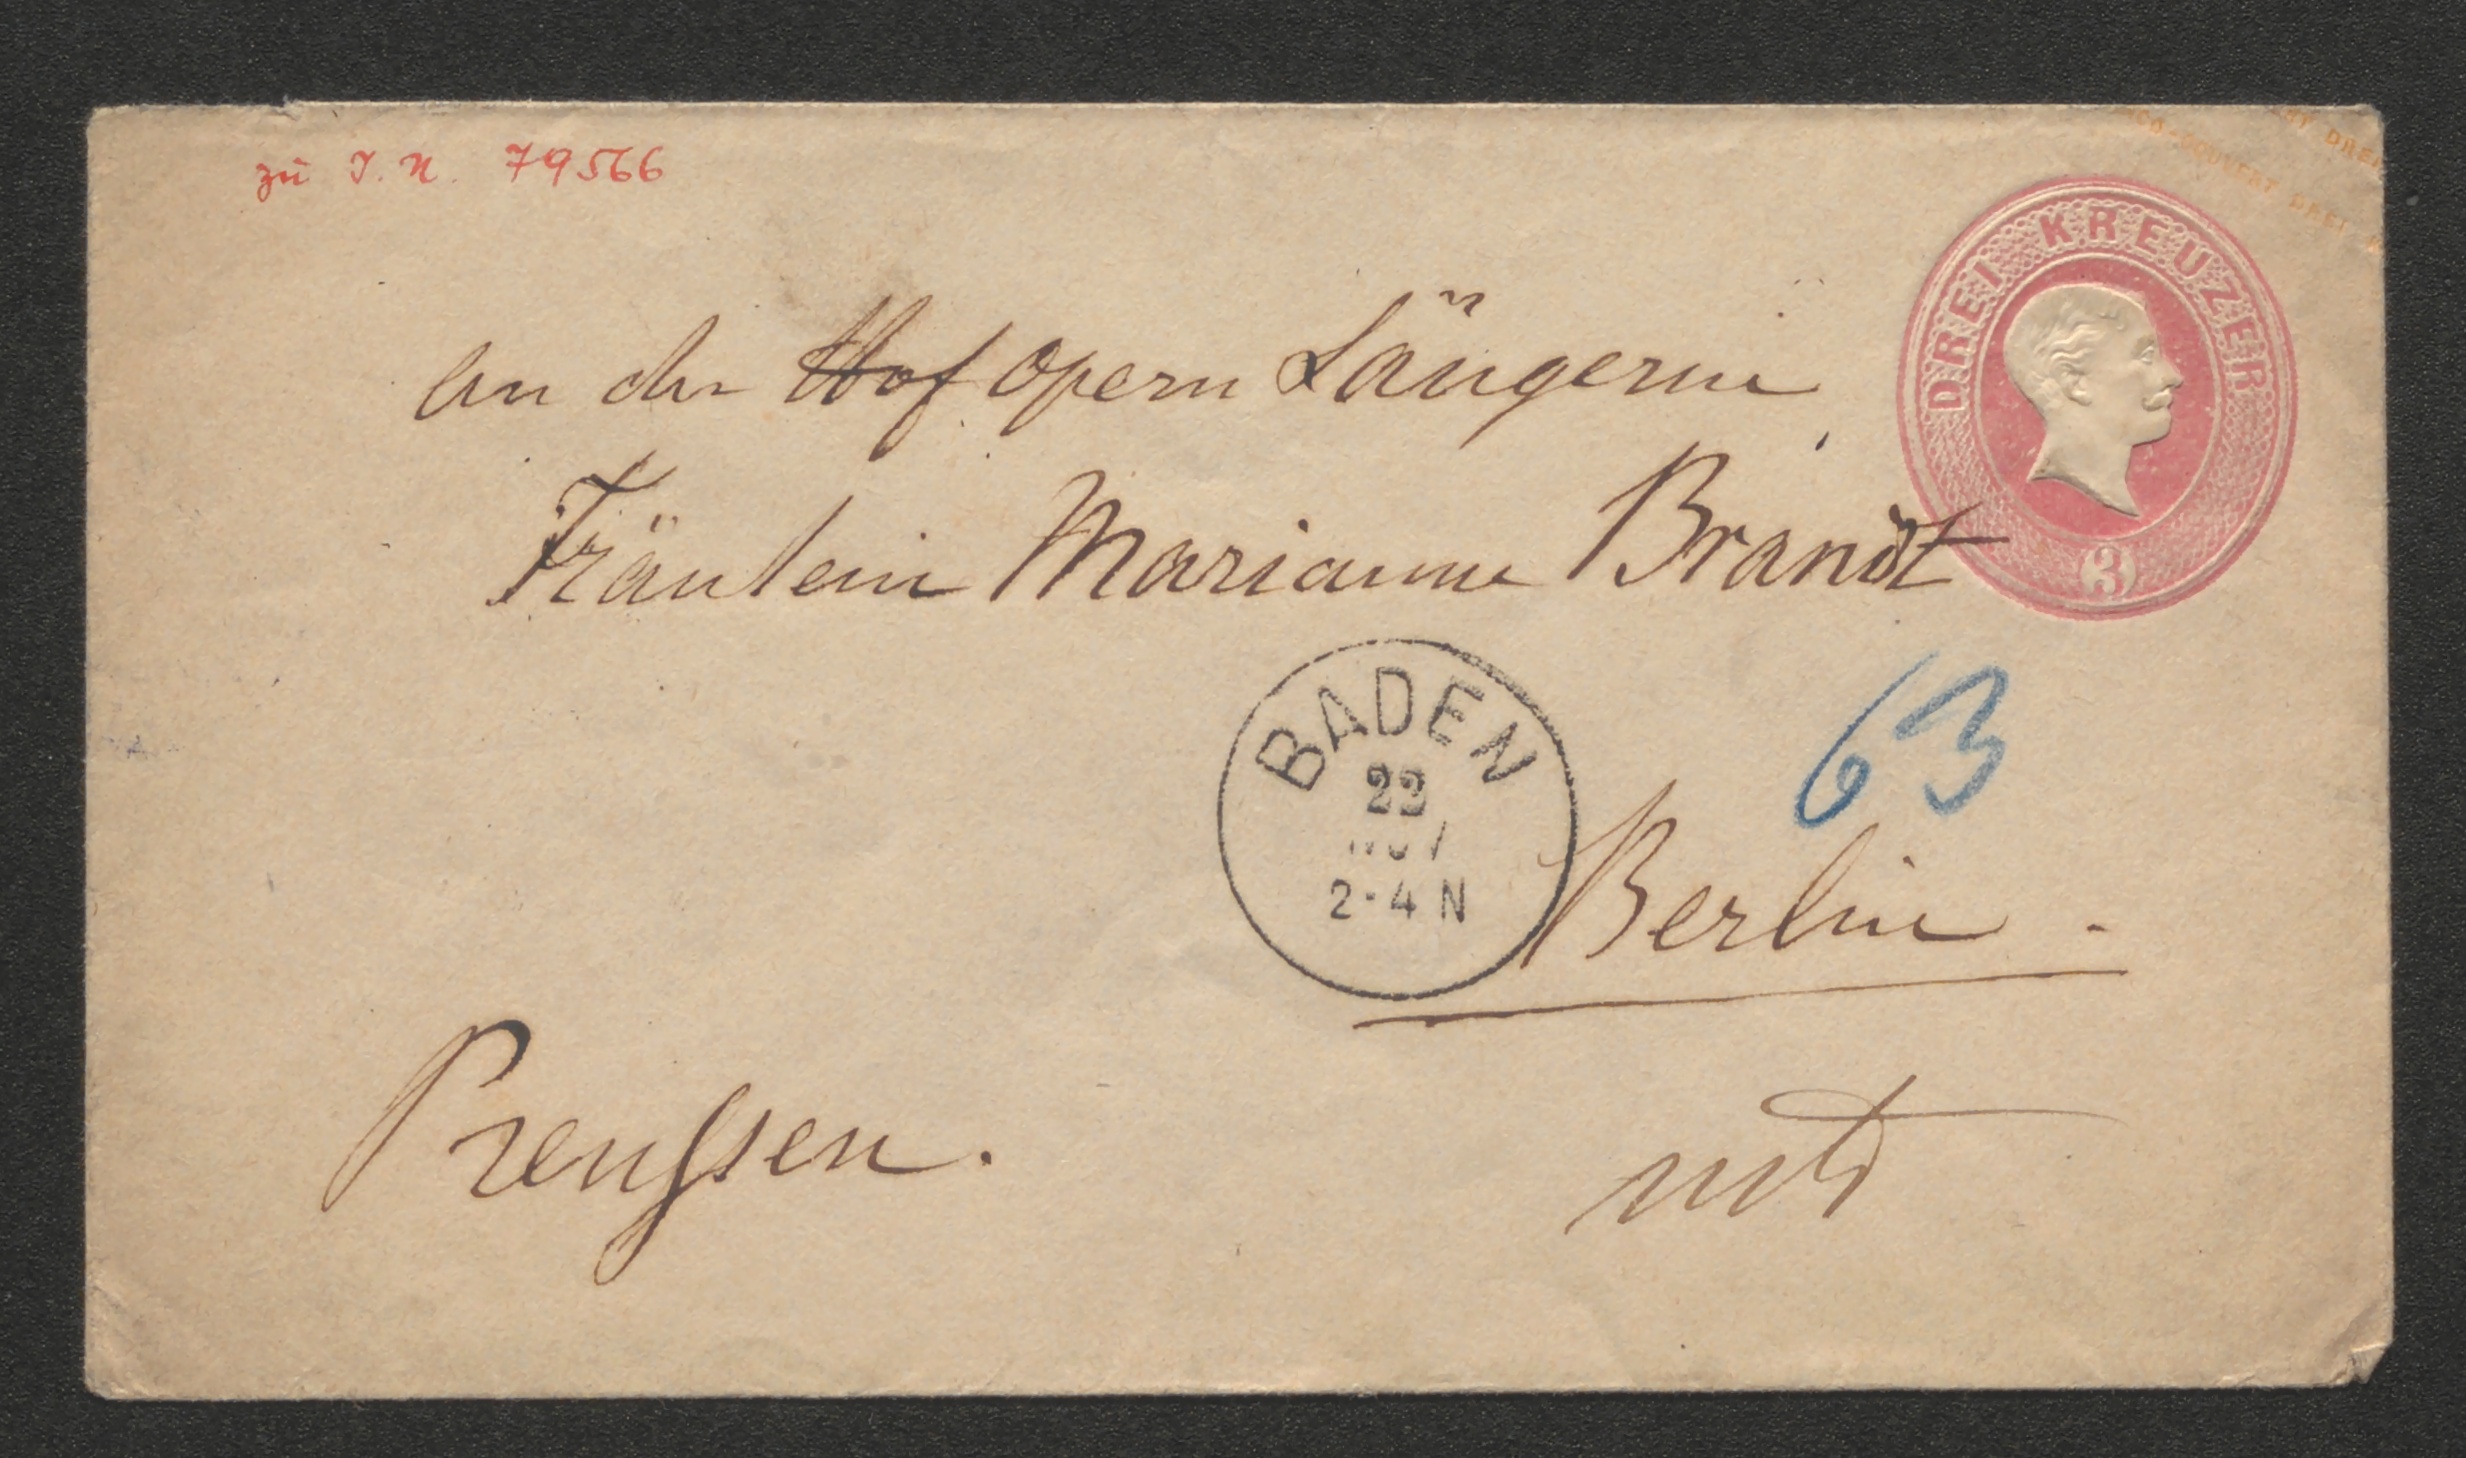 zu I. N. 79566
CO-COUVERT DREI K
DREI KREUZER
3
an die Hof opern Sängerin
Fräulein Marianne Brandt
63
BADEN
22
NOV
2-4 N
Berlin.
Preußen.